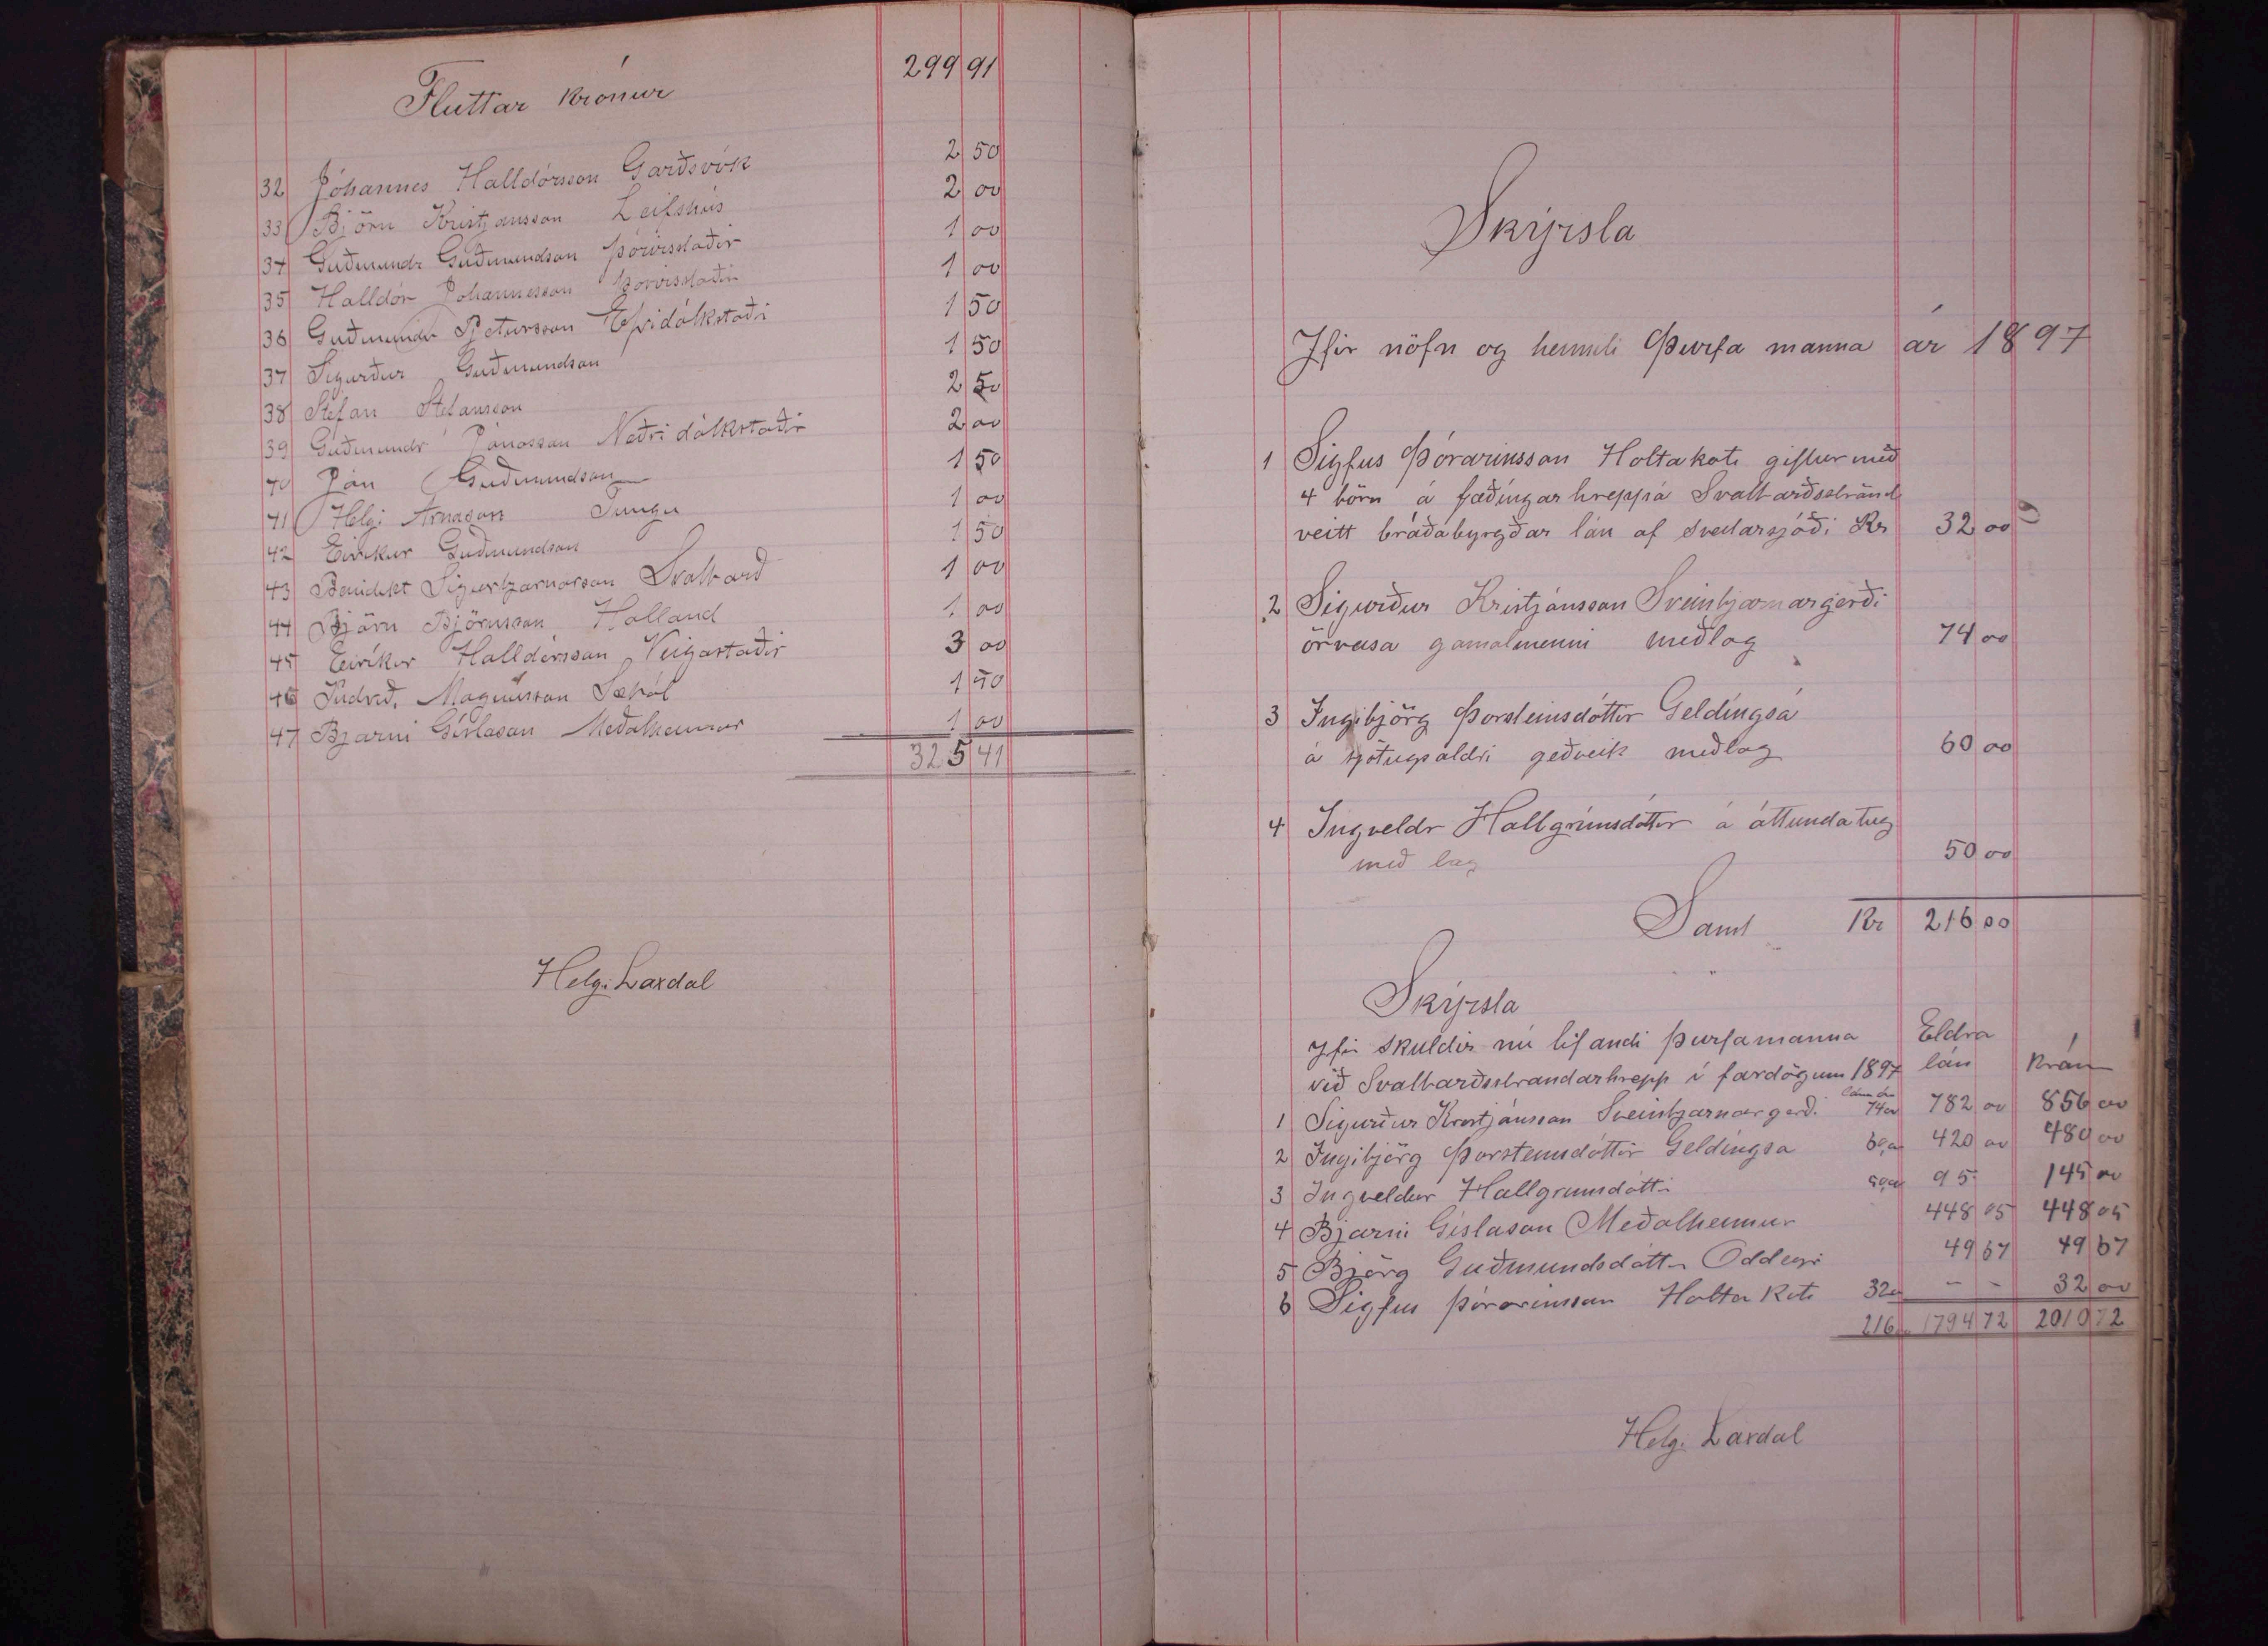 Fluttar krónur 299 91
32 Jóhannes Halldórsson Garðsvík 2 50
33 Björn Kristjánsson Leifshús 2 00
34 Guðmundr Guðmundson Þórisstaðir 1 00
35 Halldór Jóhannesson Þórisstaðir 1 00
36 Guðmundr Petursson Efridálkstaði 1 50
37 Sigurður Guðmundson 1 50
38 Stefán Stefánsson 2 50
39 Guðmundr Jónasson Neðridálkstaðir 2 00
40 Jón Guðmundson 1 50
41 Helgi Arnason Tungu 1 00
42 Eiríkur Guðmundson 1 50
43 Benidikt Sigurbjarnarson Svalbarð 1 00
44 Björn Björnsson Halland 1 00
45 Eiríkur Halldórsson Veigastaðir 3 00
46 Indrið. Magnússon 1 50
47 Bjarni Gíslason Meðalheimur 1 00
325 41
Helgi Laxdal
Skýrsla
Ifir nöfn og heimili Þurfa manna ár 1897
1 Sigfus Þórarinsson Holtakoti giftur með
4 börn á fæðíngarhrepp á Svalbarðsströnd
veitt bráðabyrgðar lán af sveitarsjóði Kr 32 00
2 Sigurður Kristjánsson Sveinbjarnargerði
örvasa gamalmenni meðlag 74 00
3 Ingibjörg Þorsteinsdóttir Geldingsá
á sjötugsaldri geðveik meðlag 60 00
4 Ingveldr Hallgrímsdóttir á áttundatug
með lag 50 00
Samt Kr 216 00
Skýrsla
Yfir skuldir nú lifandi þurfamanna Eldra
við Svalbarðsstrandarhrepp í fardögum 1897 lán Krón
1 Sigurður Kristjánsson Sveinbjarnargerð. 74 00 782 00 856 00
2 Ingibjörg Þorsteinsdóttir Geldíngsá 60,00 420 00 480 00
3 Ingveldur Hallgrimsdótti 50,00 95 145 00
4 Bjarni Gíslason Meðalheimur 448 05 448 05
5 Björg Guðmundsdóttir Oddeyri 49 67 49 67
6 Sigfus Þórarinsson Holtakoti 32 00 - - 32 00
216 00 1794 72 2010 72
Helgi Laxdal